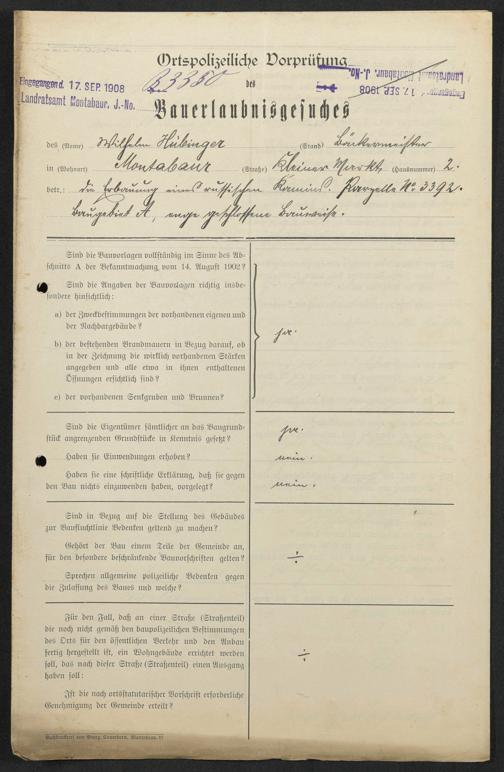 Ortspolizeiliche Vorprüfung
des
Bauerlaubnisgesuches
Eingegangen d. 17. SEP. 1908
Landratsamt Montabaur. J.-No.
B 3350
Eingegangen d. 17. SEP. 1908
Landratsamt Montabaur. J.-No.
des (Name) Wilhelm Hübinger (Stand) Bäckermeister
in (Wohnort) Montabaur (Straße) Kleiner Markt (Hausnummer) 2.
betr.: die Erbauung eines russischen Kamins. Parzelle No. 3392.
Baugebiet A, enge geschlossene Bauweise.
Sind die Bauvorlagen vollständig im Sinne des Ab-
schnitts A der Bekanntmachung vom 14. August 1902?
Sind die Angaben der Bauvorlagen richtig insbe-
sondere hinsichtlich:
a) der Zweckbestimmungen der vorhandenen eigenen und
der Nachbargebäude?
b) der bestehenden Brandmauern in Bezug darauf, ob
in der Zeichnung die wirklich vorhandenen Stärken
angegeben und alle etwa in ihnen enthaltenen
Öffnungen ersichtlich sind?
c) der vorhandenen Senkgruben und Brunnen?
ja.
Sind die Eigentümer sämtlicher an das Baugrund-
stück angrenzenden Grundstücke in Kenntnis gesetzt?
ja.
Haben sie Einwendungen erhoben?
nein.
Haben sie eine schriftliche Erklärung, daß sie gegen
den Bau nichts einzuwenden haben, vorgelegt?
nein.
Sind in Bezug auf die Stellung des Gebäudes
zur Baufluchtlinie Bedenken geltend zu machen?
Gehört der Bau einem Teile der Gemeinde an,
für den besondere beschränkende Bauvorschriften gelten?
÷
Sprechen allgemeine polizeiliche Bedenken gegen
die Zulassung des Baues und welche?
Für den Fall, daß an einer Straße (Straßenteil)
die noch nicht gemäß den baupolizeilichen Bestimmungen
des Orts für den öffentlichen Verkehr und den Anbau
fertig hergestellt ist, ein Wohngebäude errichtet werden
soll, das nach dieser Straße (Straßenteil) einen Ausgang
haben soll:
÷
Ist die nach ortsstatutarischer Vorschrift erforderliche
Genehmigung der Gemeinde erteilt?
Buchdruckerei von Georg Sauerborn, Montabaur.